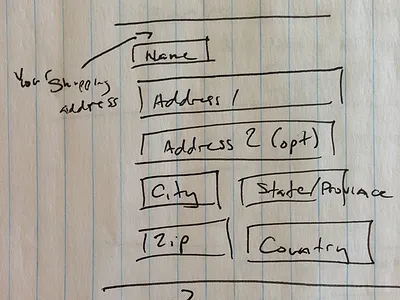 Name
Your Shipping
address
Address 1
Address 2 (opt)
City State/Province
Zip Country